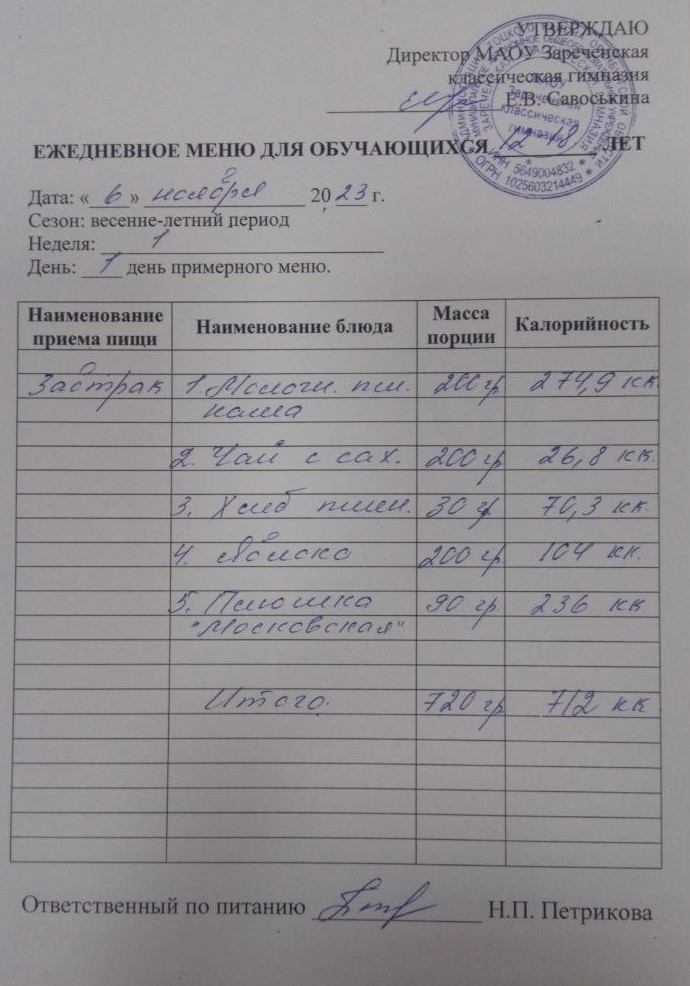 УТВЕРЖДАЮ
Директор МАОУ Зареченская
классическая гимназия
Е.В. Савоськина
ЕЖЕДНЕВНОЕ МЕНЮ ДЛЯ ОБУЧАЮЩИХСЯ 12-18 ЛЕТ
Дата: «6» ноября 2023 г.
Сезон: весенне-летний период
Неделя: 1
День: 1 день примерного меню.
Наименование приема пищи Наименование блюда Масса порции Калорийность
Завтрак 1. Молочн. пш. 200 гр 274,9 кк.
каша
2. Чай с сах. 200 гр 26,8 кк.
3. Хлеб пшен. 30 гр 70,3 кк.
4. Яблоко 200 гр 104 кк.
5. Плюшка 90 гр. 236 кк
"Московская"
Итого. 720 гр 712 кк
Ответственный по питанию Н.П. Петрикова
МАОУ
Зареченская
классическая
гимназия
ИНН 5649004832
ОГРН 1025603214449